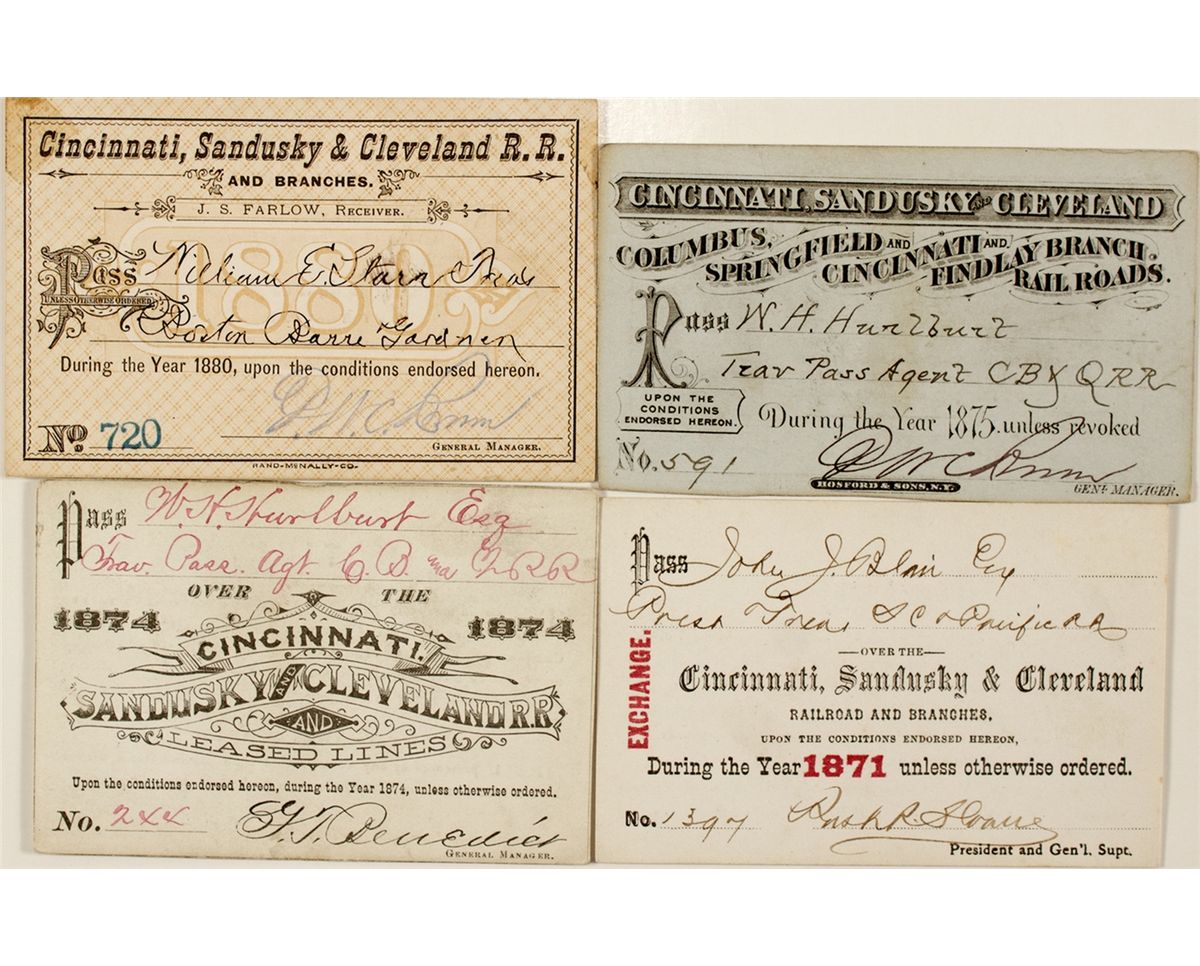 Cincinnati, Sandusky & Cleveland R. R.
AND BRANCHES.
J. S. FARLOW, RECEIVER.
1880
Pass William E. Starr Treas
UNLESS OTHERWISE ORDERED
Boston Barre Gardner
During the Year 1880, upon the conditions endorsed hereon.
No 720
GENERAL MANAGER.
RAND-McNALLY-CO.
CINCINNATI, SANDUSKY AND CLEVELAND
COLUMBUS, SPRINGFIELD AND CINCINNATI AND FINDLAY BRANCH RAIL ROADS.
Pass W. H. Hurlburt
Trav Pass Agent CB & QRR
UPON THE
CONDITIONS
ENDORSED HEREON.
During the Year 1875. unless revoked
No. 591
HOSFORD & SONS, N.Y.
GENL MANAGER.
Pass W. H. Hurlburt Esq
Trav. Pass. Agt. C. B. RR
OVER THE
1874 1874
CINCINNATI,
SANDUSKY AND CLEVELAND R.R.
AND
LEASED LINES
Upon the conditions endorsed hereon, during the Year 1874, unless otherwise ordered.
No. 244 G. T. Benedict
GENERAL MANAGER.
Pass John J. Blair Esq
Prest Treas S C & Pacific RR
EXCHANGE.
OVER THE
Cincinnati, Sandusky & Cleveland
RAILROAD AND BRANCHES,
UPON THE CONDITIONS ENDORSED HEREON,
During the Year 1871 unless otherwise ordered.
No. 1397 Rush R. Sloane
President and Gen'l. Supt.